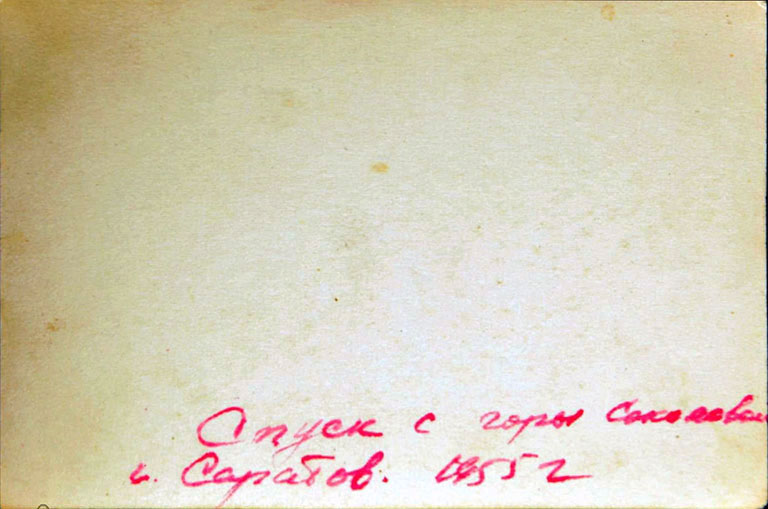 Спуск с горы Соколовой
г. Саратов. 1955 г